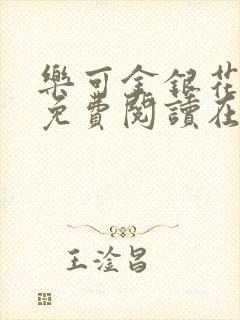 樂可金銀花
免費閱讀在
王淦昌